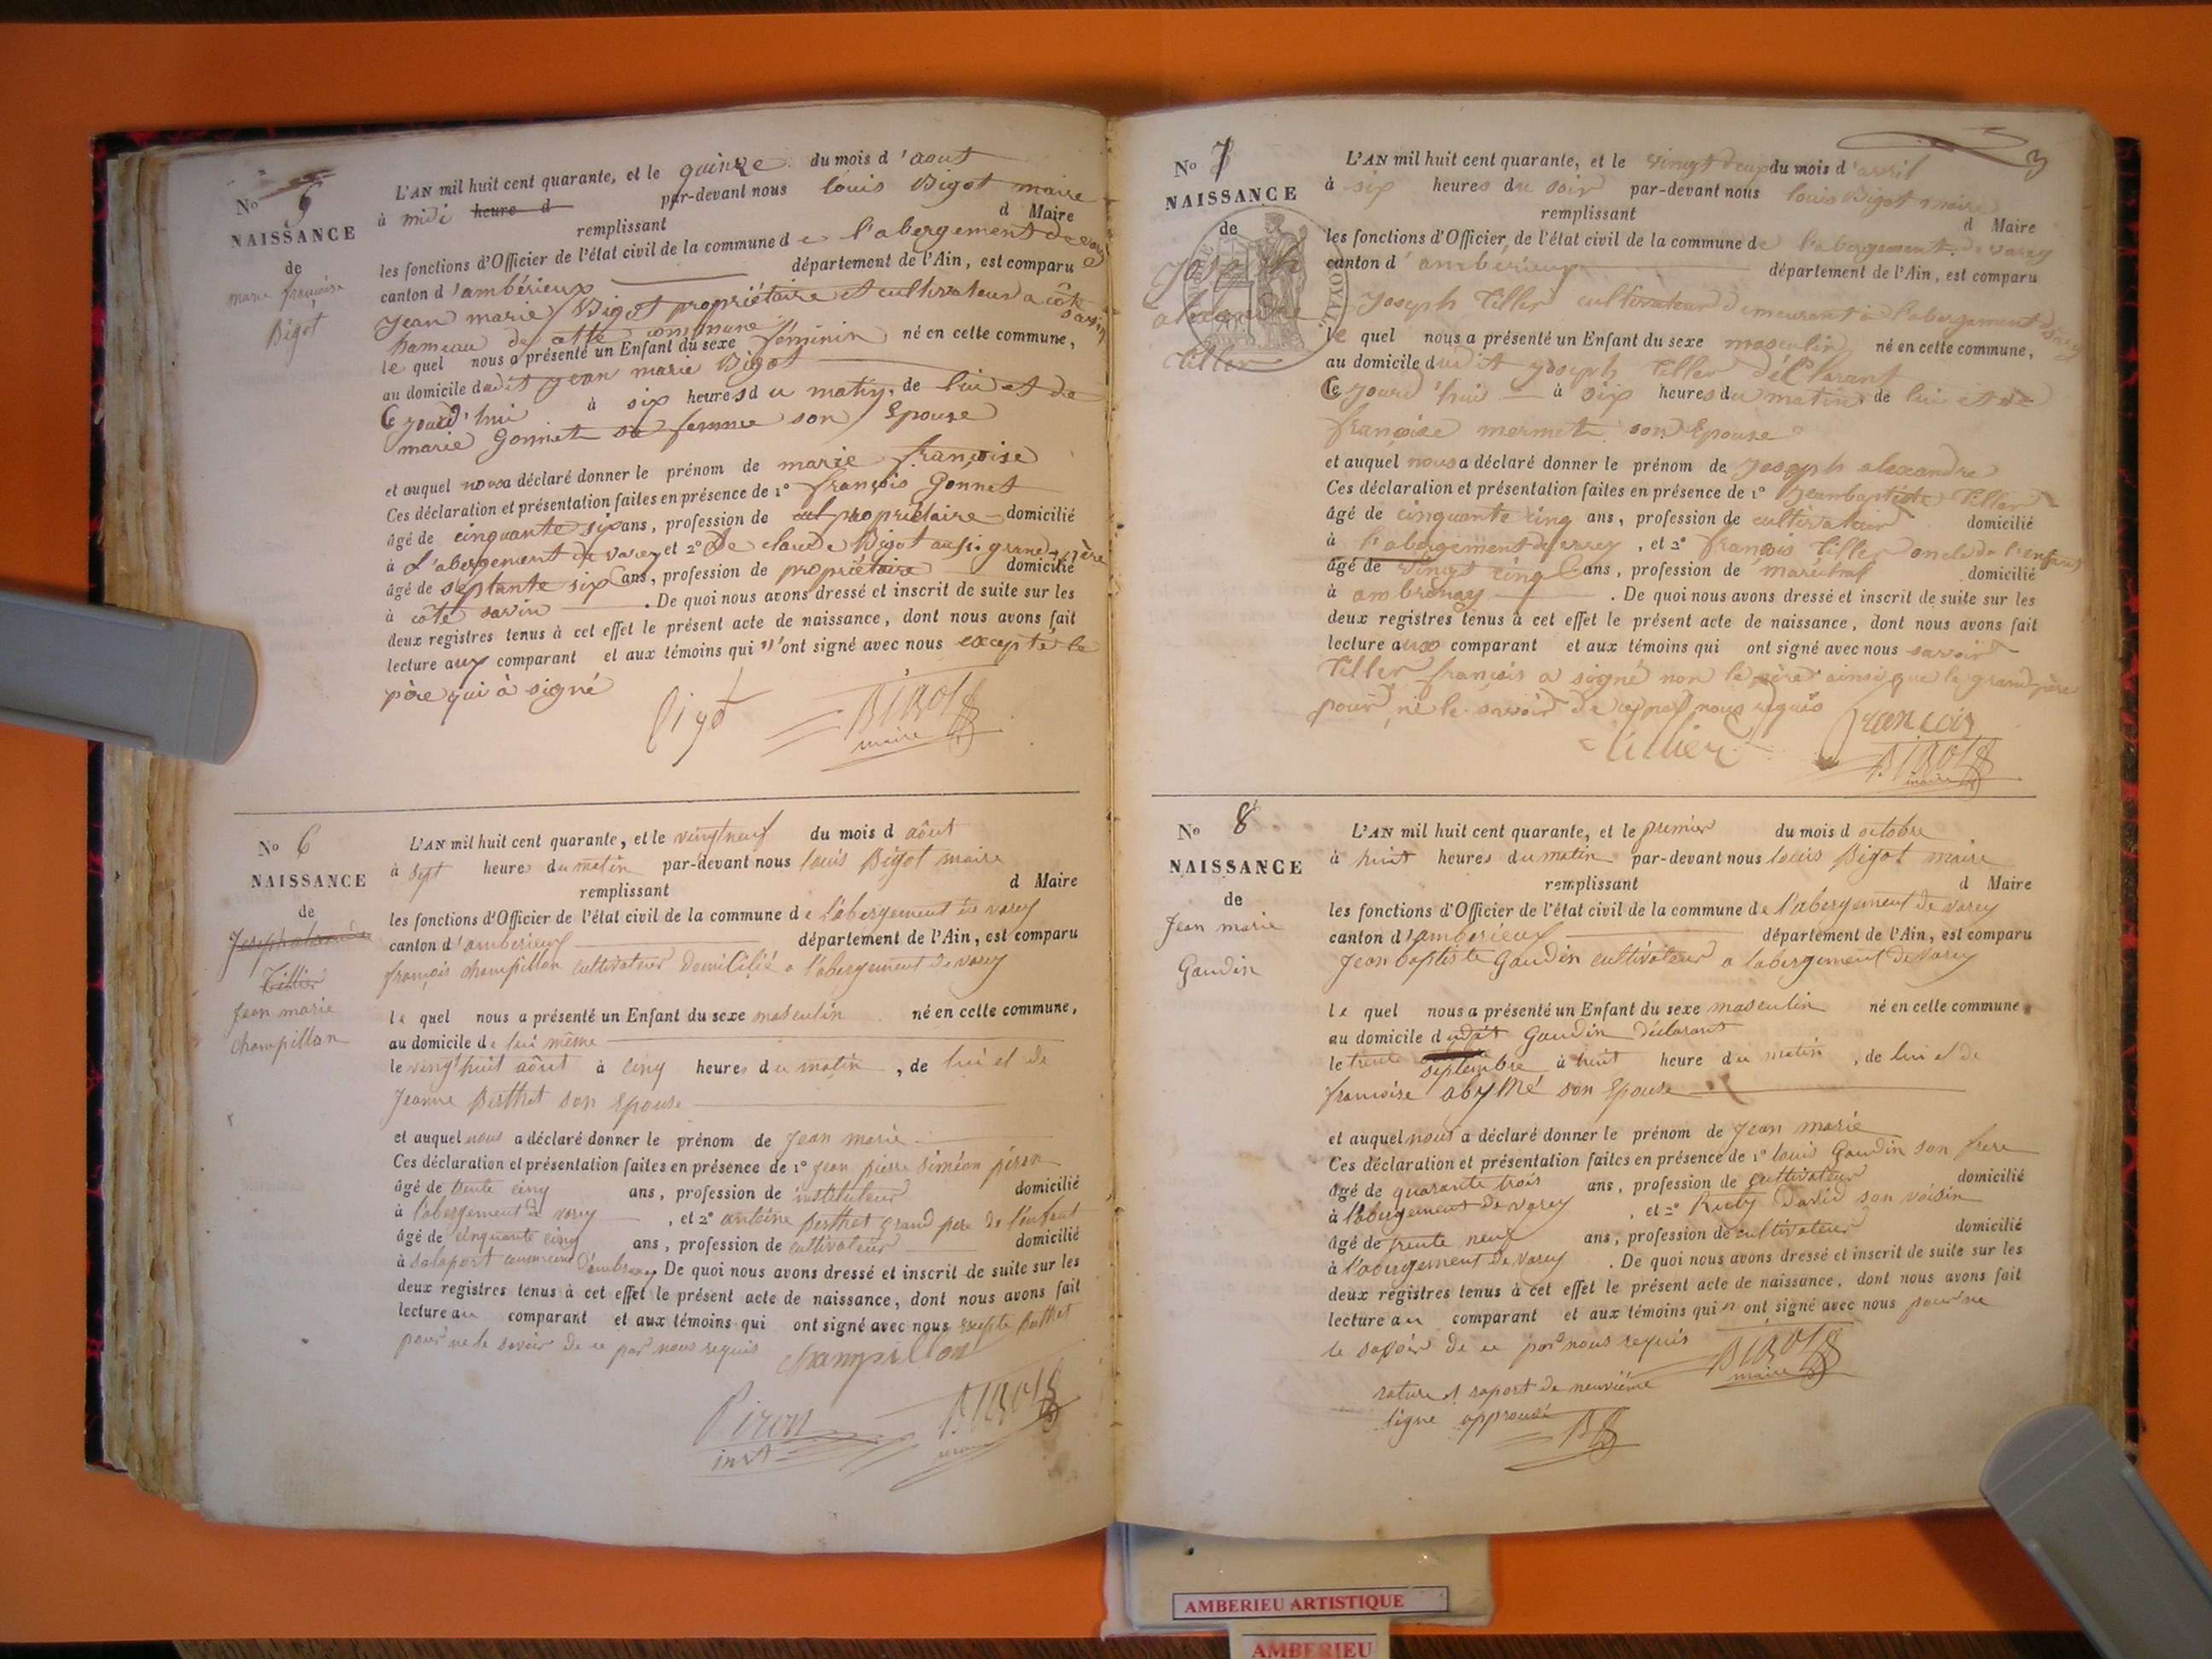 No 5
NAISSANCE
de
marie françoise
Bigot
L'AN mil huit cent quarante, et le quinze du mois d'aout
à midi heure d par-devant nous louis Bigot maire
remplissant d Maire
les fonctions d'Officier de l'état civil de la commune de l'abergement de varey
canton d'ambérieux département de l'Ain, est comparu
Jean marie Bigot propriétaire et cultivateur a côte savin
hameau de cette commune
le quel nous a présenté un Enfant du sexe féminin né en cette commune,
au domicile dudit jean marie Bigot
Ce jourd'hui à six heures du matin, de lui et de
marie Gonnet sa femme son Epouse
et auquel nous a déclaré donner le prénom de marie françoise
Ces déclaration et présentation faites en présence de 1º françois Gonnet
âgé de cinquante six ans, profession de propriétaire domicilié
à l'abergement de varey et 2º De claude Bigot aussi grand père
âgé de septante six ans, profession de propriétaire domicilié
à côte savin . De quoi nous avons dressé et inscrit de suite sur les
deux registres tenus à cet effet le présent acte de naissance, dont nous avons fait
lecture aux comparant et aux témoins qui n'ont signé avec nous excepté le
père qui à signé
Bigot BIGOT
maire
No 6
NAISSANCE
de
Joseph alexandre
Tillier
Jean marie
champillon
L'AN mil huit cent quarante, et le vingt neuf du mois d août
à sept heures du matin par-devant nous louis Bigot maire
remplissant d Maire
les fonctions d'Officier de l'état civil de la commune de l'abergement de varey
canton d'amberieux département de l'Ain, est comparu
françois champillon cultivateur domicilié a l'abergement de varey
le quel nous a présenté un Enfant du sexe masculin né en cette commune,
au domicile de lui même
le vingt huit août à cinq heures du matin, de lui et de
Jeanne Berthet son Epouse
et auquel nous a déclaré donner le prénom de Jean marie
Ces déclaration et présentation faites en présence de 1º jean pierre siméon piron
âgé de trente cinq ans, profession de instituteur domicilié
à l'abergement de varey , et 2º antoine Berthet grand pere de l'enfant
âgé de cinquante cinq ans, profession de cultivateur domicilié
à Salaport commune d'ambronay. De quoi nous avons dressé et inscrit de suite sur les
deux registres tenus à cet effet le présent acte de naissance, dont nous avons fait
lecture au comparant et aux témoins qui ont signé avec nous excepté Berthet
pour ne le savoir de ce par nous requis champillon
Piron BIGOT
inst maire
3
No 7
NAISSANCE
de
Joseph
alexandre
Tiller
L'AN mil huit cent quarante, et le vingt deux du mois d'avril
à six heures du soir par-devant nous louis Bigot maire
remplissant d Maire
les fonctions d'Officier de l'état civil de la commune de l'abergement de varey
canton d'ambérieux département de l'Ain, est comparu
Joseph Tiller cultivateur demeurant à l'abergement de varey
le quel nous a présenté un Enfant du sexe masculin né en cette commune,
au domicile dudit yoseph Tiller déclarant
Ce jourd'hui à six heures du matin, de lui et de
françoise mermet son Epouse
et auquel nous a déclaré donner le prénom de Joseph alexandre
Ces déclaration et présentation faites en présence de 1º Jean baptiste Tiller
âgé de cinquante cinq ans, profession de cultivateur domicilié
à l'abergement de varey , et 2º françois Tiller oncle de l'enfant
âgé de vingt cinq ans, profession de maréchal domicilié
à ambronay . De quoi nous avons dressé et inscrit de suite sur les
deux registres tenus à cet effet le présent acte de naissance, dont nous avons fait
lecture aux comparant et aux témoins qui ont signé avec nous savoir
Tiller françois a signé non le père ainsi que le grand père
pour ne le savoir de ce par nous requis
françois
tillier BIGOT
maire
No 8
NAISSANCE
de
Jean marie
Gaudin
L'AN mil huit cent quarante, et le premier du mois d octobre
à huit heures du matin par-devant nous louis Bigot maire
remplissant d Maire
les fonctions d'Officier de l'état civil de la commune de l'abergement de varey
canton d'amberieux département de l'Ain, est comparu
Jean baptiste Gaudin cultivateur a labergement de varey
le quel nous a présenté un Enfant du sexe masculin né en cette commune,
au domicile dudit Gaudin déclarant
le trente septembre à huit heure du matin, de lui et de
francoise son Epouse
et auquel nous a déclaré donner le prénom de Jean marie
Ces déclaration et présentation faites en présence de 1º louis Gaudin son frere
âgé de quarante trois ans, profession de cultivateur domicilié
à l'abergement de varey , et 2º David son voisin
âgé de trente neuf ans, profession de cultivateur domicilié
à l'abergement de varey . De quoi nous avons dressé et inscrit de suite sur les
deux registres tenus à cet effet le présent acte de naissance, dont nous avons fait
lecture au comparant et aux témoins qui n'ont signé avec nous pour ne
le savoir de ce par nous requis BIGOT
maire
rature et saport de neuvième
ligne approuvé B
AMBERIEU ARTISTIQUE
AMBERIEU